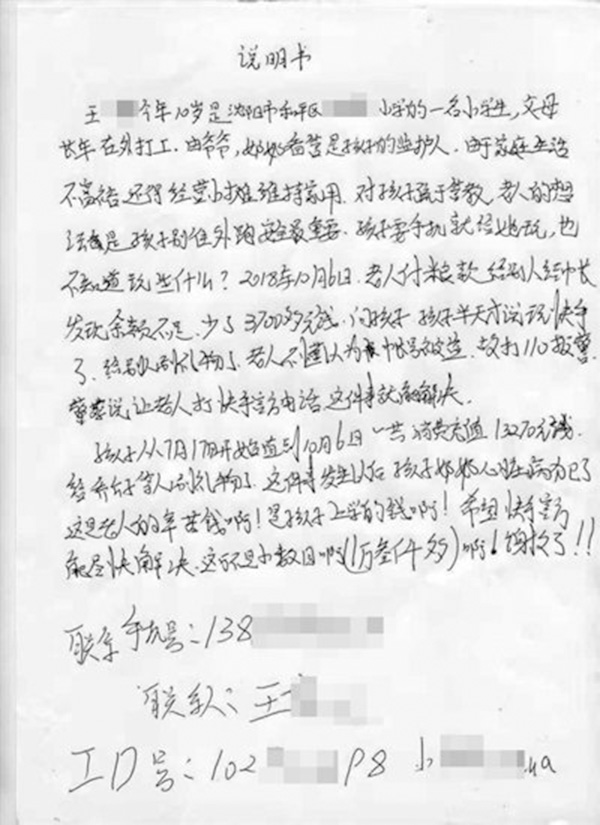 说明书
王 今年10岁是沈阳市和平区 小学的一名小学生,父母
长年在外打工.由爷爷,奶奶看管是孩子的监护人.由于家庭生活
不富裕还得经营小摊维持家用.对孩子疏于管教.老人的想
法就是孩子别往外跑安全最重要.孩子要手机就给她玩,也
不知道玩些什么?2018年10月6日.老人付米款给别人经
发现余额不足.少了3700多元钱.问孩子孩子半天才说玩快手
了.给别人刷礼物了.老人不懂认为帐号被盗.故打110报警
警察说让老人打快手官方电话.这件事就能解决.
孩子从7月17日开始直到10月6日一共消费充值13270元钱
给 等人刷礼物了.这件事发生以后孩子奶奶心脏病犯了
这是老人的辛苦钱啊!是孩子上学的钱啊!希望快手官方
能尽快解决.这可不是小数目啊(1万叁仟多)啊!谢谢了!!
联系手机号:138
联系人:王
ID号:102 P8 小 na